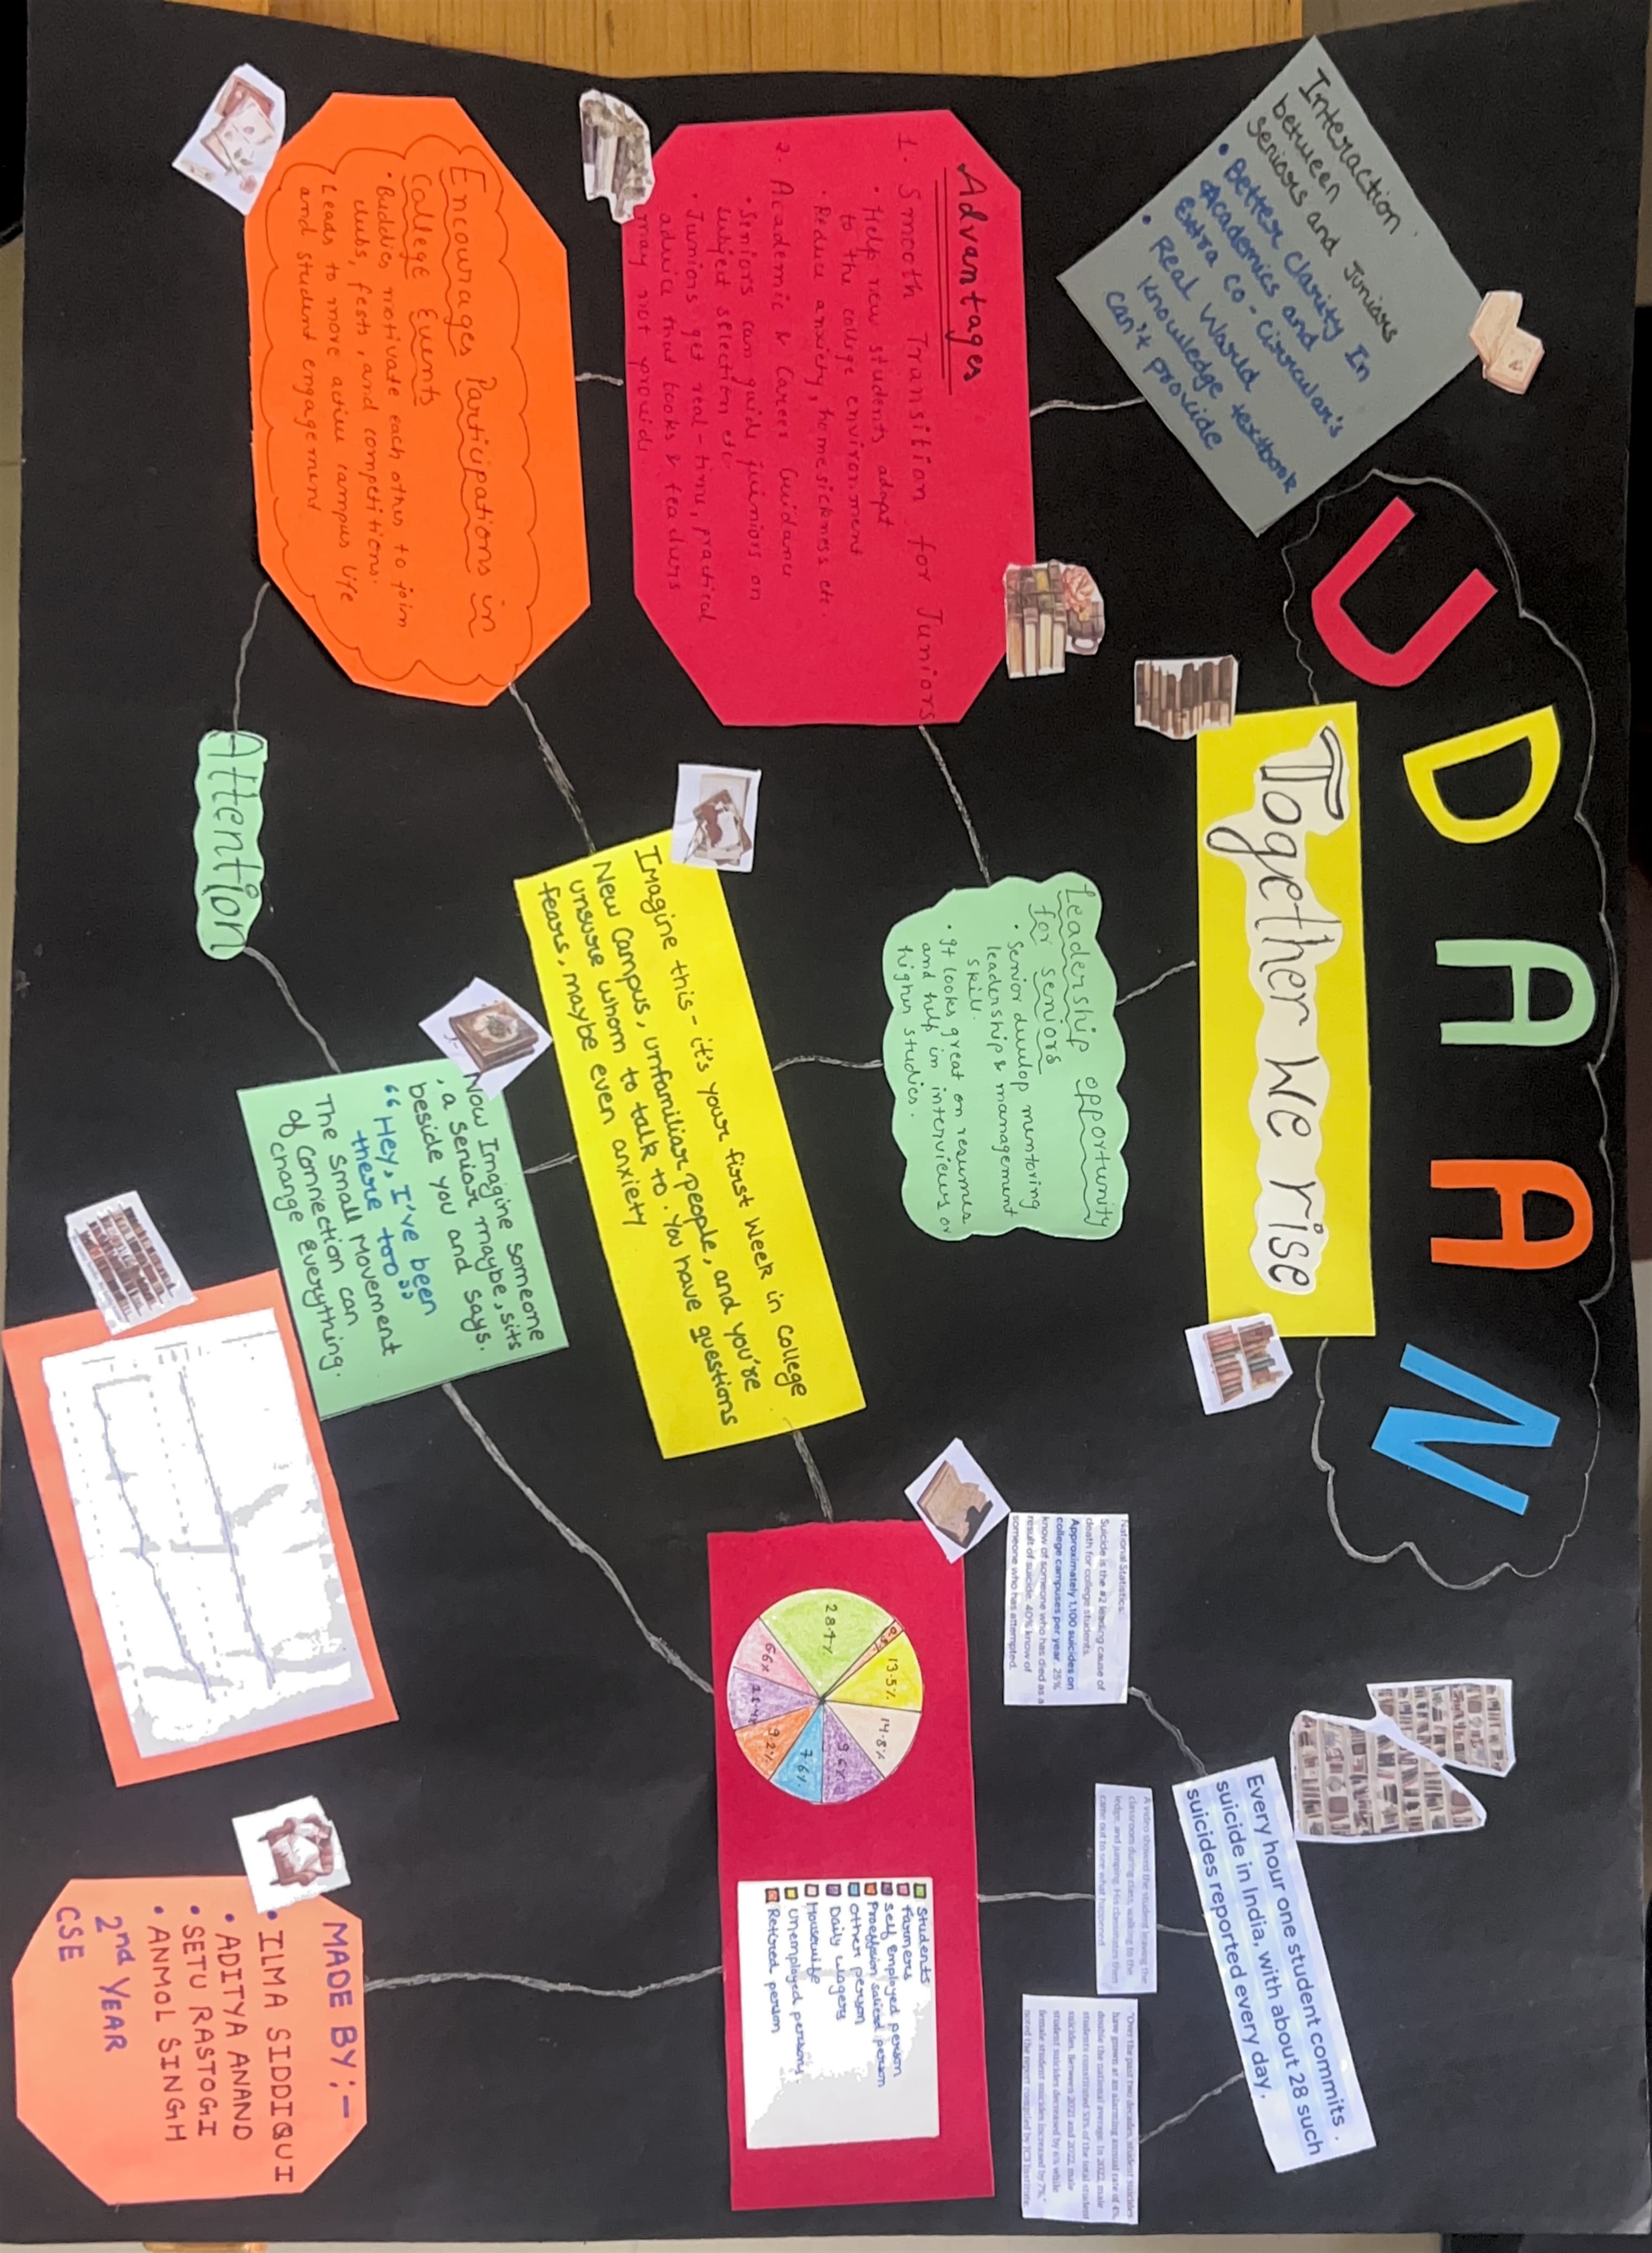 UDAAN
Together We rise
Interaction
between
Seniors and Juniors
• Better Clarity In
Academics and
Extra Co-Cirrcular's
• Real World
Knowledge textbook
can't provide
Advantages
1. Smooth Transition for Juniors
• Help new students adapt
to the college environment
• Reduce anxiety, homesickness etc.
2. Academic & Career Guidance
• Seniors can guide juniors on
subject selection etc.
• Juniors get real-time, practical
advice that books & teachers
may not provide
Encourages Participations in
College Events
• Buddies motivate each other to join
clubs, fests, and competitions.
Leads to more active campus life
and student engagement
Attention
Leadership opportunity
for seniors
• Senior develop mentoring
leadership & management
skill.
• It looks great on resumes
and help in interviews or
higher studies.
Imagine this - it's your first Week in College
New Campus, unfamiliar people, and you're
unsure whom to talk to. You have questions
fears, maybe even anxiety
Now Imagine someone
, a senior maybe, sits
beside you and says.
"Hey, I've been
there too"
The small Movement
of Connection can
change everything.
National Statistics:
Suicide is the #2 leading cause of
death for college students.
Approximately 1,100 suicides on
college campuses per year. 25%
know of someone who has died as a
result of suicide. 40% know of
someone who has attempted.
Every hour one student commits
suicide in India, with about 28 such
suicides reported every day.
A video showed the student leaving the
classroom during class, walking to the
ledge, and jumping. His classmates then
came out to see what happened
"Over the past two decades, student suicides
have grown at an alarming annual rate of 4%,
double the national average. In 2022, male
students constituted 53% of the total student
suicides. Between 2021 and 2022, male
student suicides decreased by 6% while
female student suicides increased by 7%,"
noted the report compiled by IC3 Institute
13.5%
14.8%
7.6%
9.2%
6.6%
Students
Farmers
Self employed person
other person
Daily wagers
Housewife
unemployed persons
Retired person
MADE BY:-
• ILMA SIDDIQUI
• ADITYA ANAND
• SETU RASTOGI
• ANMOL SINGH
2nd YEAR
CSE